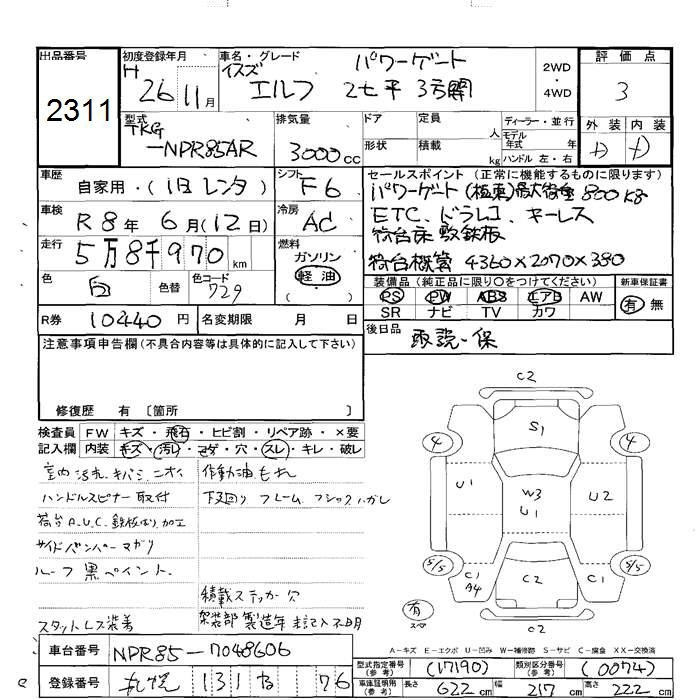 出品番号
2311
初度登録年月
H 26 11月
車名・グレード
イスズ エルフ パワーゲート
2t平 3方開
2WD
・
4WD
評価点
3
外装 内装
D D
型式
TKG
-NPR85AR
排気量
3000cc
ドア
定員 人
形状
積載 kg
ディーラー・並行
モデル
年式 年
ハンドル 左・右
車歴
自家用・(旧レンタ)
シフト
F6
車検
R8年 6月(12日)
冷房
AC
走行
5万8千970km
燃料
ガソリン
軽油
( ・ )
色
白
色替
色コード
729
R券
10440円
名変期限 月 日
セールスポイント(正常に機能するものに限ります)
パワーゲート(極東)最大荷重800kg
ETC、ドラレコ、キーレス
荷台床敷鉄板
荷台概算 4360×2070×380
装備品(純正品に限り○をつけてください)
PS PW ABS エアB AW
SR ナビ TV カワ
新車保証書
有 無
後日品
取説・保
注意事項申告欄(不具合内容等は具体的に記入して下さい)
修復歴 有〔箇所 〕
検査員
記入欄
FW キズ・飛石・ヒビ割・リペア跡・×要
内装 キズ・汚レ・コゲ・穴・スレ・キレ・破レ
室内汚れ、キバミ、ニオイ
ハンドルスピナー取付
荷台A.U.C.鉄板はり、加工
サイドバンパーマガリ
ルーフ黒ペイント.
スタットレス装着
作動油もれ
下廻り フレーム、フシック、ハガレ
積載ステッカー欠
架装部製造年未記入不明
C2
S1
4 4
U1
W3
U1
U2
5/5 5/5
C1
A4
C2
C1
有
スペア
C2
A-キズ E-エクボ U-凹み W-補修跡 S-サビ C-腐食 XX-交換済
車台番号
NPR85-7048606
登録番号
札幌 131 な 76
型式指定番号
(参考)
(17190)
類別区分番号
(参考)
(0074)
車庫証明用
(参考)
長さ 622cm
幅 217cm
高さ 222cm